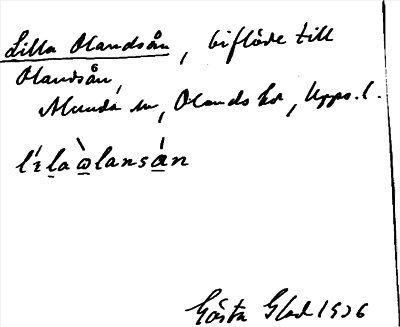 Lilla Olandsån, biflöde till
Olandsån,
Alunda sn, Olands hd, Upps. l.
lɩ́la ɷ̀lansán
Gösta Glad 1936